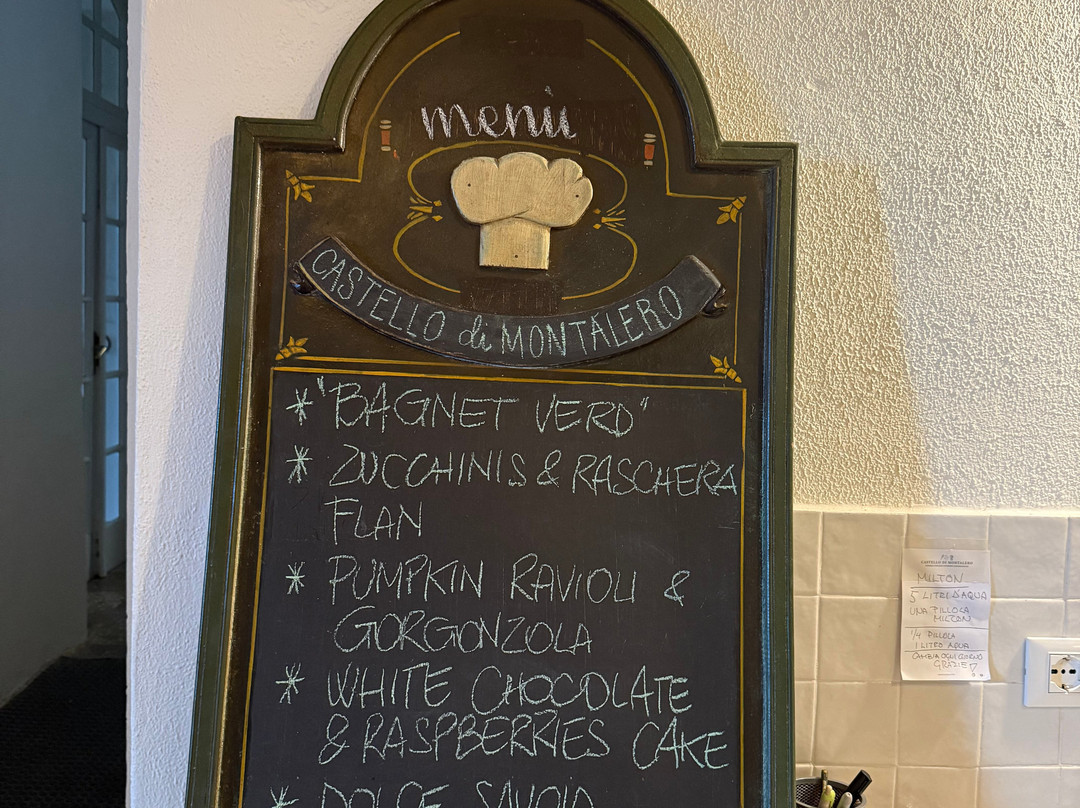 menù
CASTELLO di MONTALERO
* "BAGNET VERD"
* ZUCCHINIS & RASCHERA
FLAN
* PUMPKIN RAVIOLI &
GORGONZOLA
* WHITE CHOCOLATE
& RASPBERRIES CAKE
* DOLCE SAVOIA
CASTELLO DI MONTALERO
MILTON
5 LITRI D'AQUA
UNA PILLOLA
MILTON
1/4 PILLOLA
1 LITRO AQUA
CAMBIA OGNI GIORNO
GRAZIE!